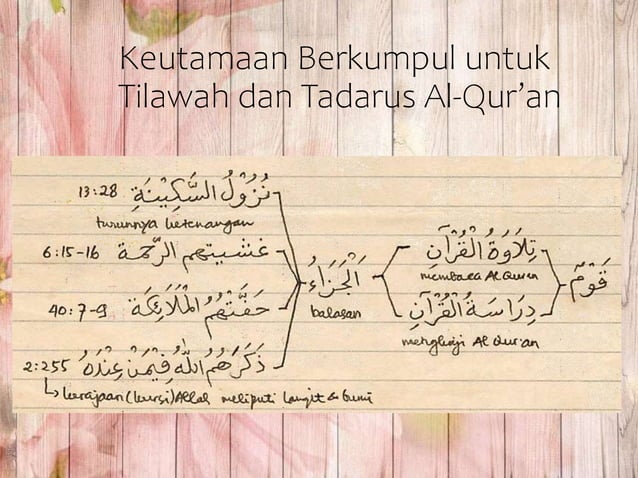 Keutamaan Berkumpul untuk
Tilawah dan Tadarus Al-Qur’an
قَوْمٌ
تِلَاوَةُ الْقُرْآنِ
membaca Al Quran
دِرَاسَةُ الْقُرْآنِ
mengkaji Al Qur'an
اَلْجَزَاءُ
balasan
نُزُوْلُ السَّكِيْنَةِ 13:28
turunnya ketenangan
غَشِيَتْهُمُ الرَّحْمَةُ 6:15-16
حَفَّتْهُمُ الْمَلَائِكَةُ 40:7-9
ذَكَرَهُمُ اللّٰهُ فِيْمَنْ عِنْدَهُ 2:255
kerajaan (kursi) Allah meliputi langit & bumi